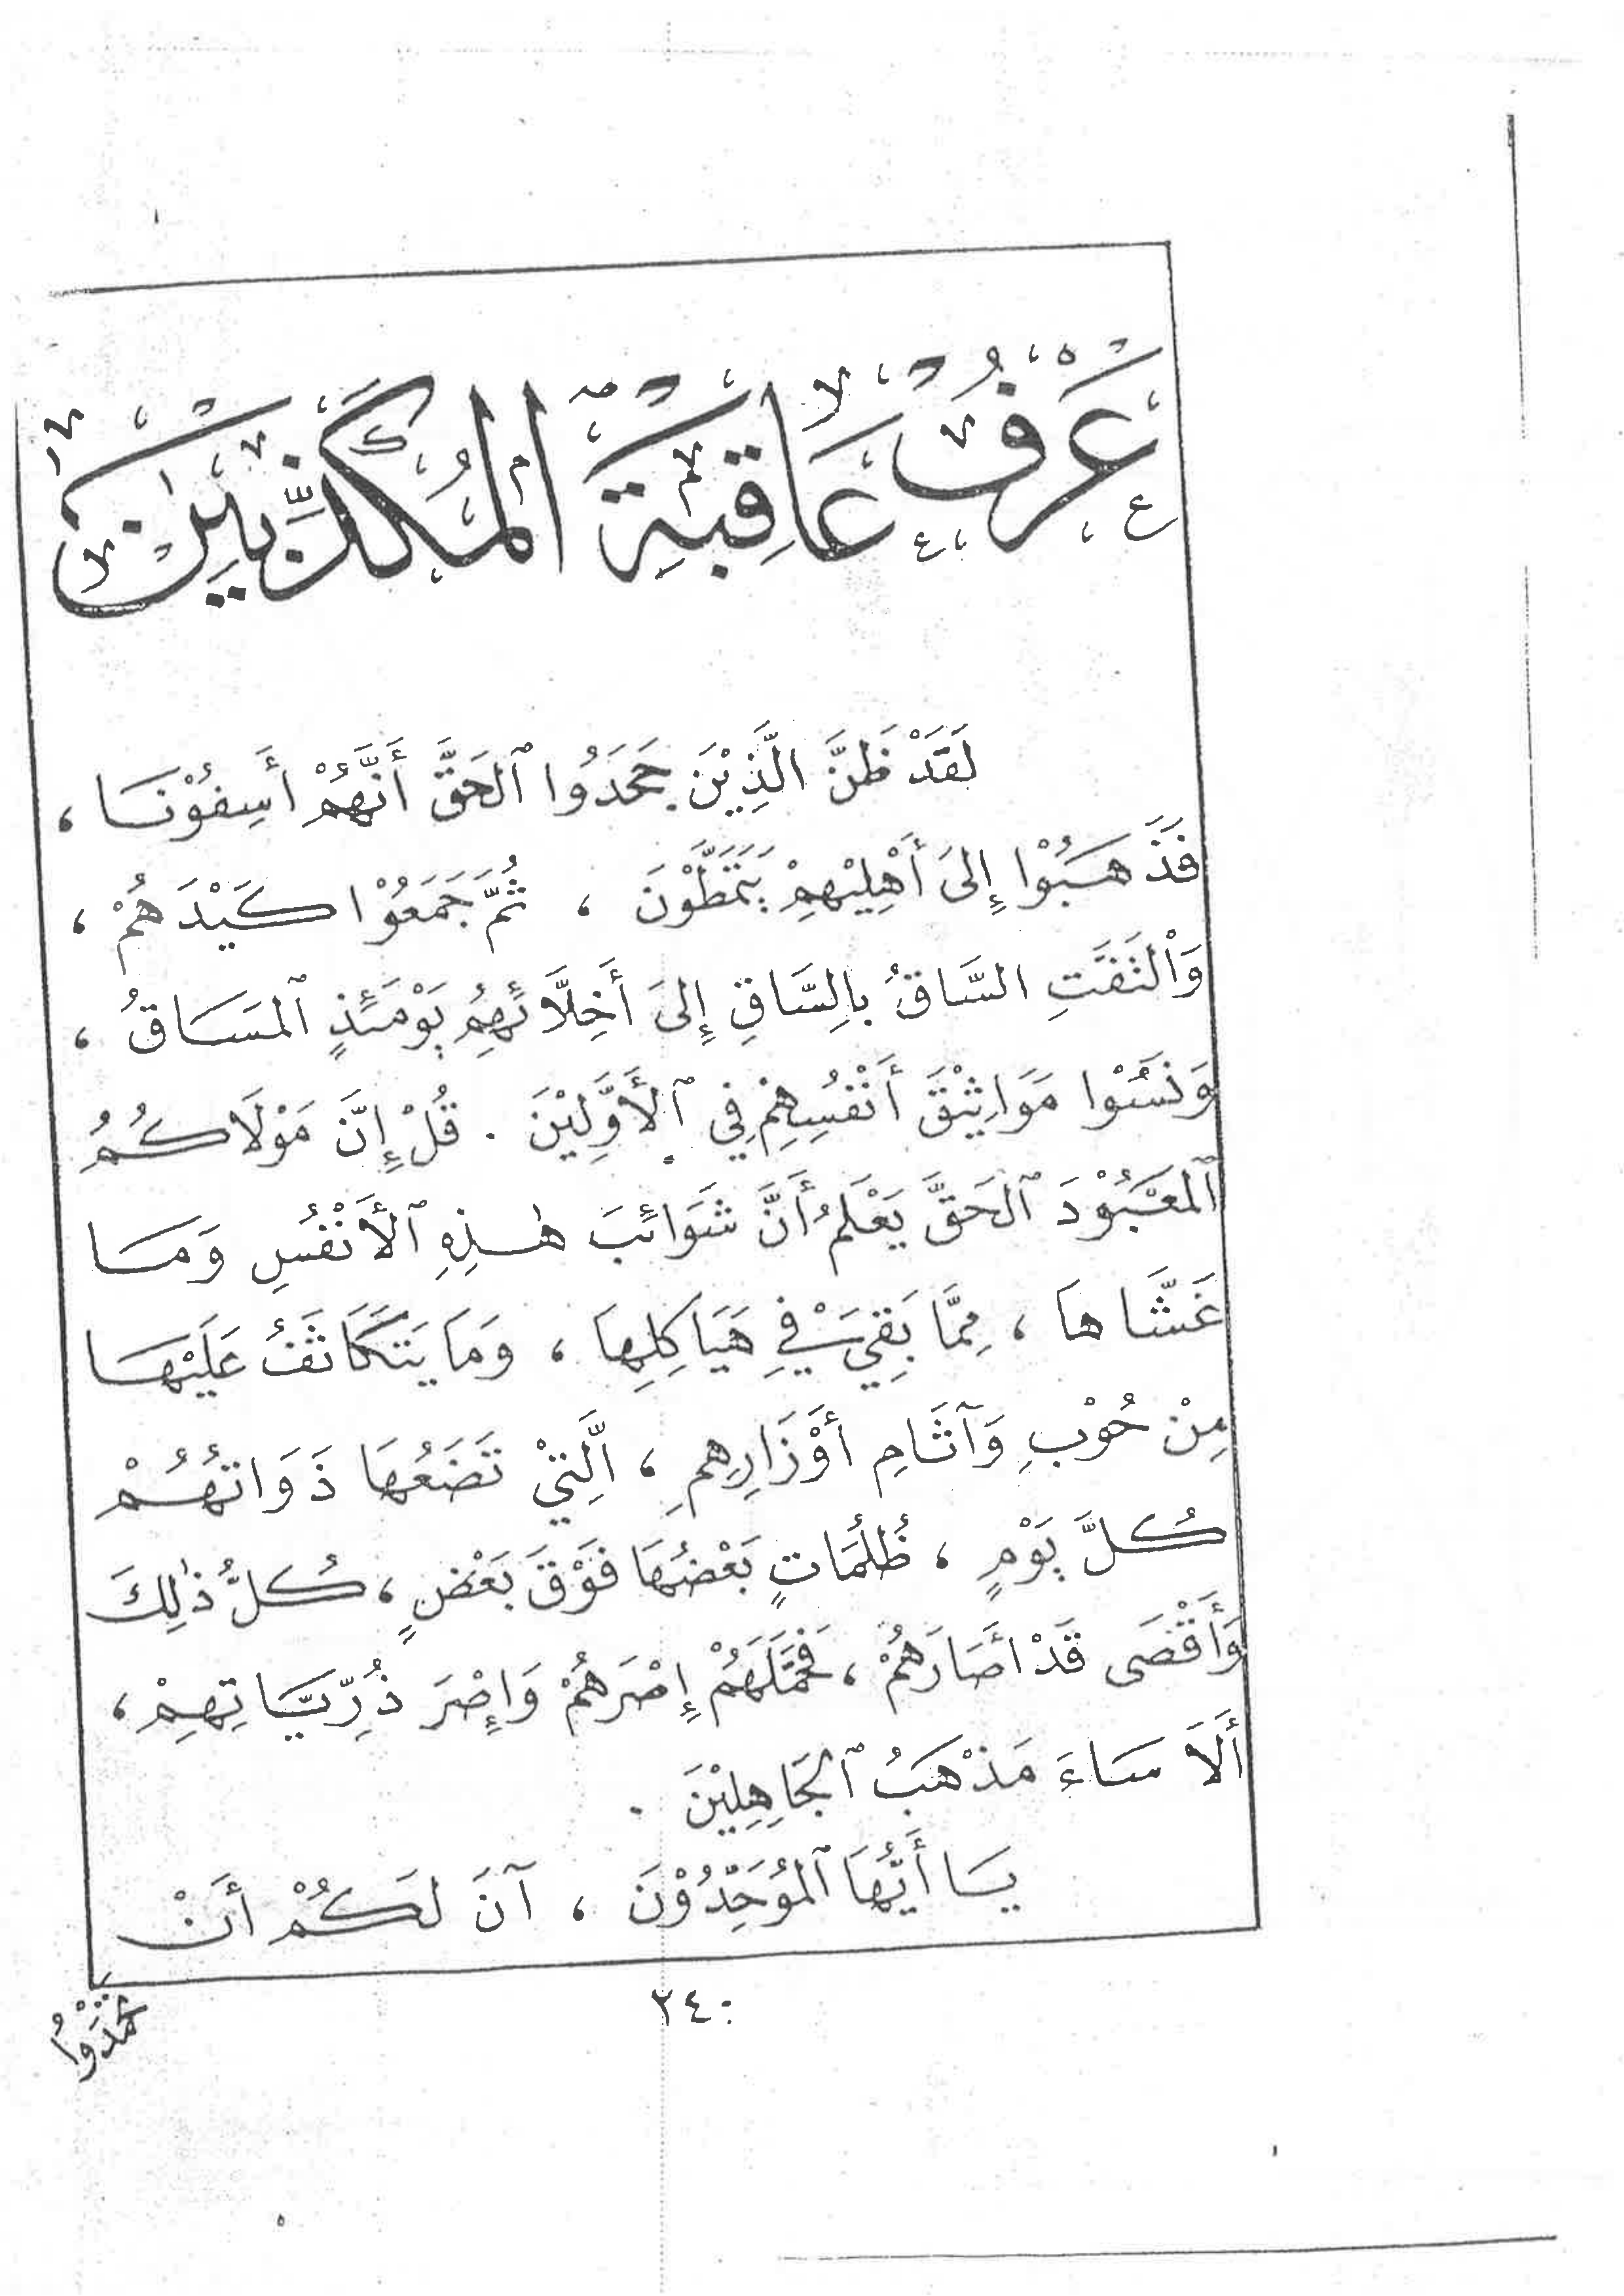 عَرْفُ عَاقِبَةِ المُكَذِّبِينَ
لَقَدْ ظَنَّ الَّذِيْنَ جَحَدُوا ٱلحَقَّ أَنَّهُمْ أَسِفُوْنَا ،
فَذَهَبُوْا إِلىَ أَهْلِيْهِمْ يَتَمَطَّوْنَ ، ثُمَّ جَمَعُوْا كَيْدَهُمْ ،
وَالْتَفَّتِ السَّاقُ بِالسَّاقِ إِلىَ أَخِلَّائِهِمُ يَوْمَئِذٍ ٱلمَسَاقُ ،
وَنَسُوْا مَوَاثِيْقَ أَنْفُسِهِمْ فِي ٱلأَوَّلِيْنَ . قُلْ إِنَّ مَوْلَاكُمُ
ٱلمَعْبُوْدَ ٱلحَقَّ يَعْلَمُ أَنَّ شَوَائِبَ هٰذِهِ ٱلأَنْفُسِ وَمَا
غَشَّاهَا ، مِمَّا بَقِيَ فِيْ هَيَاكِلِهَا ، وَمَا يَتَكَاثَفُ عَلَيْهَا
مِنْ حُوْبِ وَآثَامِ أَوْزَارِهِمِ ، الَّتِيْ تَضَعُهَا ذَوَاتُهُمْ
كُلَّ يَوْمٍ ، ظُلُمَاتٍ بَعْضُهَا فَوْقَ بَعْضٍ ، كُلُّ ذٰلِكَ
وَأَقْصَى قَدْ أَصَارَهُمْ ، فَحَمَّلَهُمْ إِصْرَهُمْ وَإِصْرَ ذُرِّيَّاتِهِمْ ،
أَلَا سَاءَ مَذْهَبُ ٱلجَاهِلِيْنَ .
يَا أَيُّهَا ٱلمُوَحِّدُوْنَ ، آنَ لَكُمْ أَنْ
٢٤٠